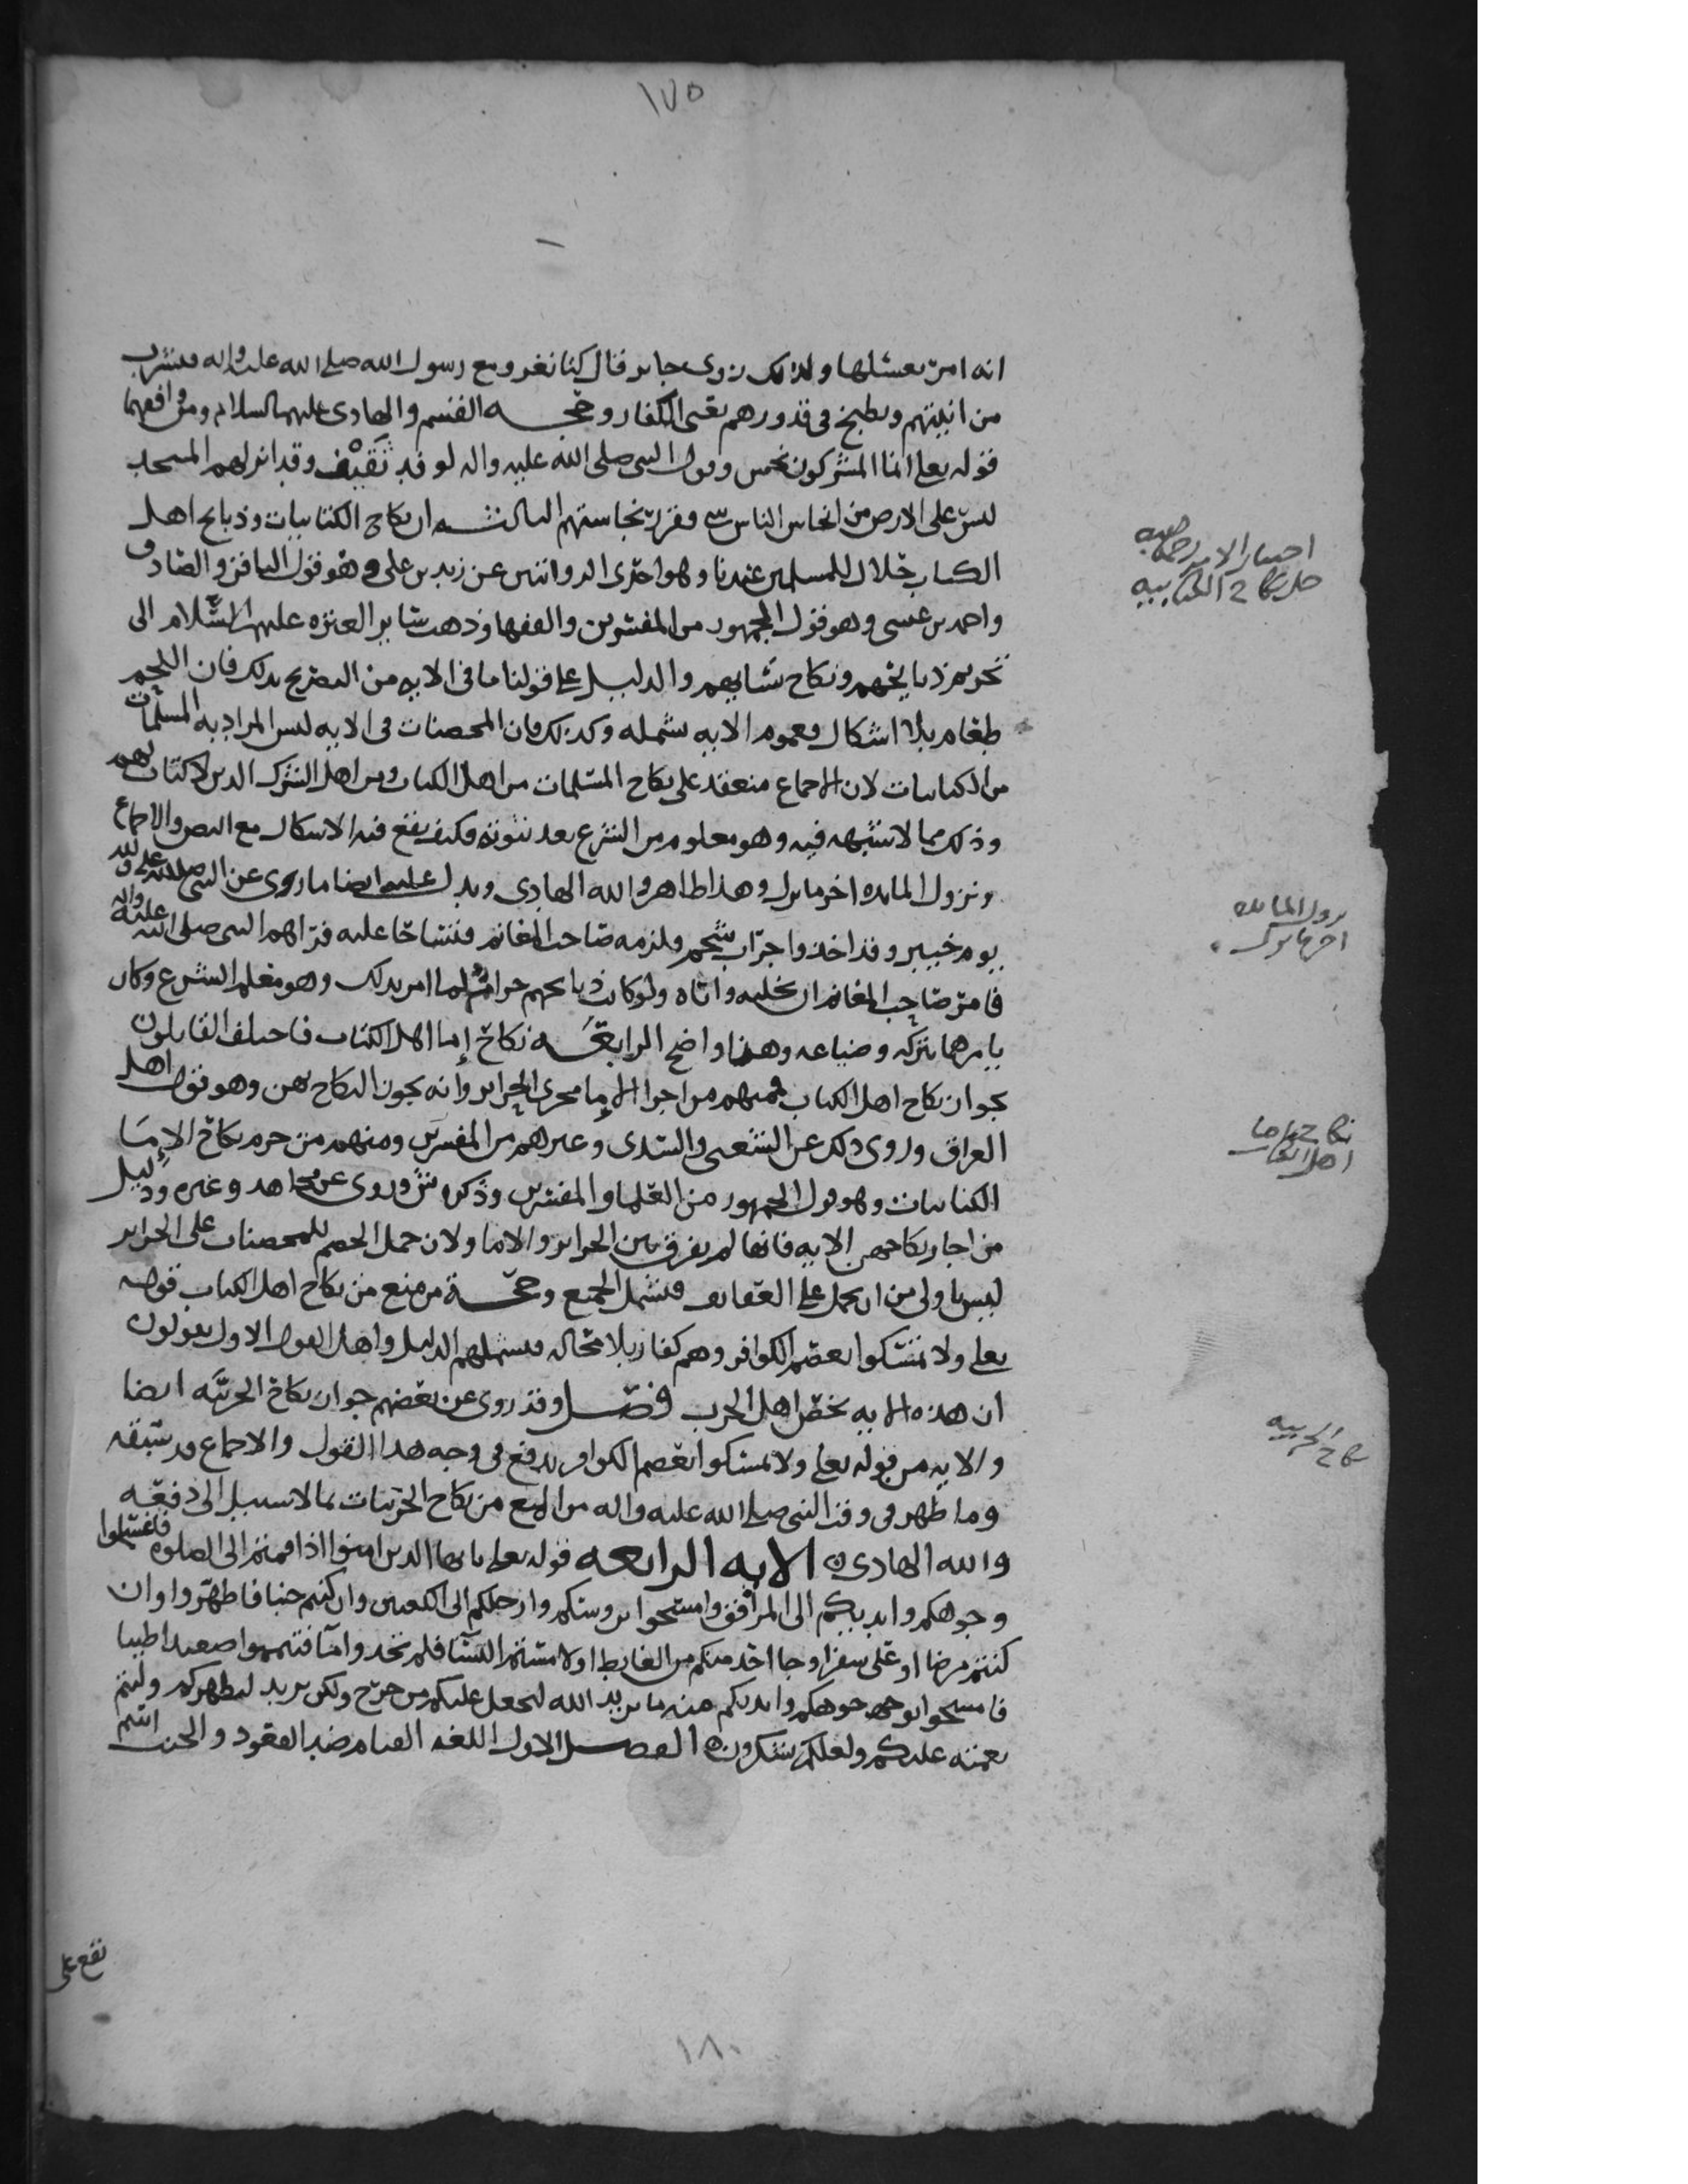 ١٧٥
انه امر بغسلها ولذلك روى جابر قال كنا نغزو مع رسول الله صلى الله عليه واله فنشرب
من انيتهم ونطبخ في قدورهم يعني الكفار وحجه القسم والهادي عليهما السلام ومن وافقهما
قوله تعلى انما المشركون نجس وقول النبي صلى الله عليه واله لوفد ثقيف وقد انزلهم المسجد
ليس على الارض من انجاس الناس شي فقرر نجاستهم الثالثه ان نكاح الكتابيات وذبايح اهل
الكتاب حلال للمسلمين عندنا وهو احدى الروايتين عن زيد بن علي وهو قول الباقر والصادق
واحمد بن عيسى وهو قول الجمهور من المفسرين والفقها وذهب ساير العتره عليهم السلام الى
تحريم ذبايحهم ونكاح نسايهم والدليل على قولنا ما في الايه من التصريح بذلك فان اللحم
طعام بلا اشكال وعموم الايه شمله وكذلك فان المحصنات في الايه ليس المراد به المسلمات
من الكتابيات لان الاجماع منعقد على نكاح المسلمات من اهل الكتاب ومن اهل الشرك الذين لا كتاب لهم
وذلك مما لا نشتبهه فيه وهو معلوم من الشرع بعد ثبوته فكيف يقع فيه الاشكال مع النص والاجماع
ونزول المايده اخر ما نزل وهذا ظاهر والله الهادي ويدل عليه ايضا ما روى عن النبي صلى الله عليه واله
يوم خيبر وقد اخذوا جراب شحم ولزمه صاحب المغانم فتشاحا عليه فراهم النبي صلى الله عليه واله
فامر صاحب المغانم ان يخليه واياه ولو كانت ذبايحهم حرام لما امر بذلك وهو معلم الشرع وكان
يامرهما بتركه وضياعه وهذا واضح الرابعه نكاح إما اهل الكتاب فاختلف القايلون
بجواز نكاح اهل الكتاب فمنهم من اجرا الاما مجرى الحراير وانه يجوز النكاح بهن وهو قول اهل
العراق وروى ذلك عن الشعبي والسدي وغيرهم من المفسرين ومنهم من حرم نكاح الإما
الكتابيات وهو قول الجمهور من العلما والمفسرين وذكره ش وروى عن مجاهد وغيره ودليل
من اجاز نكاحهن الايه فانها لم يفرق بين الحراير والاما ولان حمل الخصم للمحصنات على الحراير
ليس باولى من ان يحمل على العفايف فتشمل الجميع وحجة من منع من نكاح اهل الكتاب قوله
تعلى ولا تمسكوا بعصم الكوافر وهم كفار بلا محاله فيشملهم الدليل واهل القول الاول يقولون
ان هذه الايه تخص اهل الحرب فصل وقد روى عن بعضهم جواز نكاح الحربيه ايضا
والايه من قوله تعلى ولا تمسكوا بعصم الكوافر يدفع في وجه هذا القول والاجماع قد سبقه
وما ظهر في وقت النبي صلى الله عليه واله من المنع من نكاح الحربيات مما لا سبيل الى دفعه
والله الهادي ه الايه الرابعه قوله تعلى يايها الذين امنوا اذا قمتم الى الصلوه فاغسلوا
وجوهكم وايديكم الى المرافق وامسحوا بروسكم وارجلكم الى الكعبين وان كنتم جنبا فاطهروا وان
كنتم مرضا او على سفر او جا احد منكم من الغايط او لامستم النسا فلم تجدوا ما فتيمموا صعيدا طيبا
فامسحوا بوجوهكم وايديكم منه ما يريد الله ليجعل عليكم من حرج ولكن يريد ليطهركم وليتم
نعمته عليكم ولعلكم تشكرون ه الفصل الاول اللغه القيام ضد القعود والجنب اسم
اختيار الامير رحمه الله
حل نكاح الكتابيه
نزول المايده
اخر ما نزل
نكاح إما
اهل الكتاب
نكاح الحربيه
تقع على
١٨٠